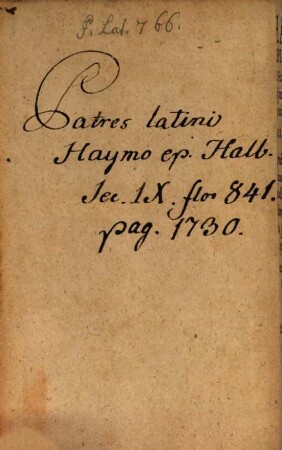 P. Lat. 766.
Patres latini
Haymo ep. Halb.
Sec. IX. flor 841.
pag. 1730.